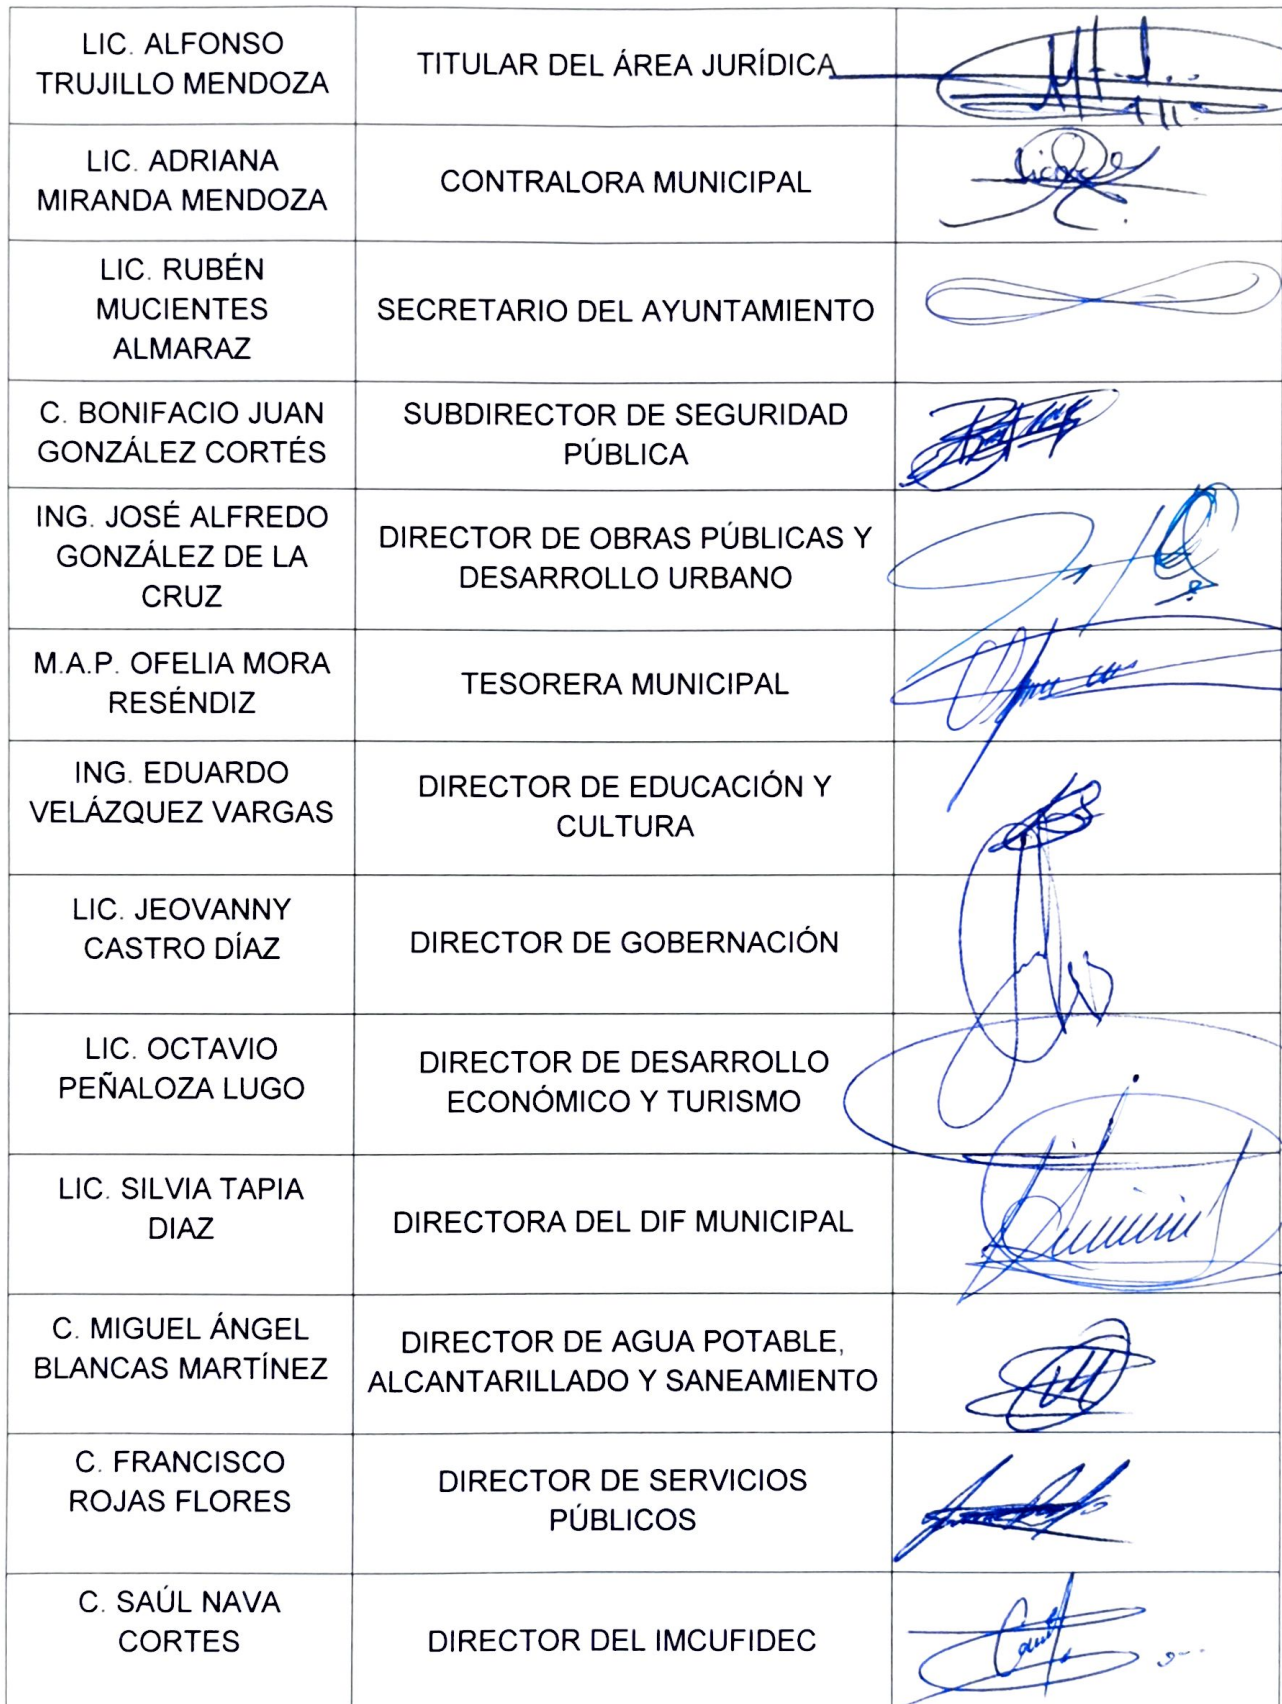 LIC. ALFONSO
TRUJILLO MENDOZA
TITULAR DEL ÁREA JURÍDICA
LIC. ADRIANA
MIRANDA MENDOZA
CONTRALORA MUNICIPAL
LIC. RUBÉN
MUCIENTES
ALMARAZ
SECRETARIO DEL AYUNTAMIENTO
C. BONIFACIO JUAN
GONZÁLEZ CORTÉS
SUBDIRECTOR DE SEGURIDAD
PÚBLICA
ING. JOSÉ ALFREDO
GONZÁLEZ DE LA
CRUZ
DIRECTOR DE OBRAS PÚBLICAS Y
DESARROLLO URBANO
M.A.P. OFELIA MORA
RESÉNDIZ
TESORERA MUNICIPAL
ING. EDUARDO
VELÁZQUEZ VARGAS
DIRECTOR DE EDUCACIÓN Y
CULTURA
LIC. JEOVANNY
CASTRO DÍAZ
DIRECTOR DE GOBERNACIÓN
LIC. OCTAVIO
PEÑALOZA LUGO
DIRECTOR DE DESARROLLO
ECONÓMICO Y TURISMO
LIC. SILVIA TAPIA
DIAZ
DIRECTORA DEL DIF MUNICIPAL
C. MIGUEL ÁNGEL
BLANCAS MARTÍNEZ
DIRECTOR DE AGUA POTABLE,
ALCANTARILLADO Y SANEAMIENTO
C. FRANCISCO
ROJAS FLORES
DIRECTOR DE SERVICIOS
PÚBLICOS
C. SAÚL NAVA
CORTES
DIRECTOR DEL IMCUFIDEC